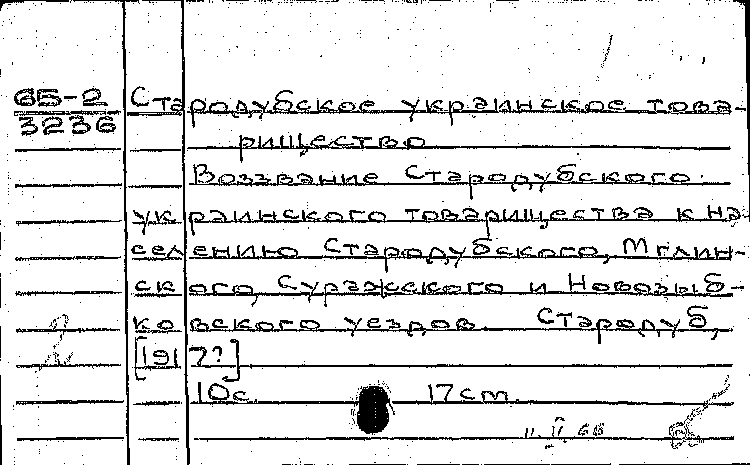 65-2
3236
Стародубское украинское това-
рищество
Воззвание Стародубского
украинского товарищества к на-
селению Стародубского, Мглин-
ского, Суражского и Новозыб-
ковского уездов. Стародуб,
[1917?]
10с. 17cm.
11.II.66